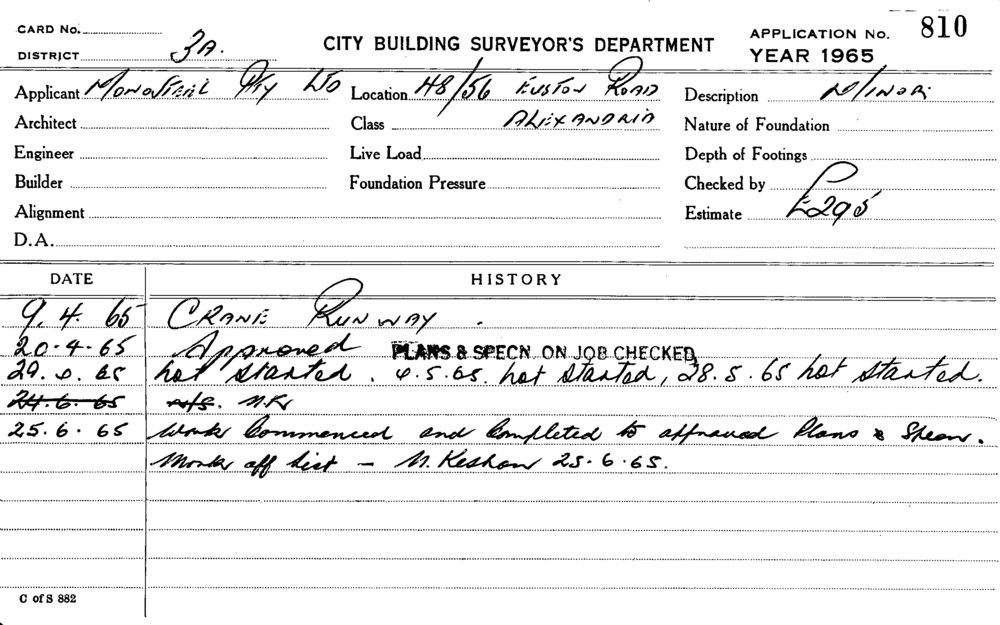 CARD No.
DISTRICT 3A.
CITY BUILDING SURVEYOR'S DEPARTMENT
APPLICATION No. 810
YEAR 1965
Applicant Monosteel Pty Ltd Location 48/56 Euston Road Description Minor
Architect Class Alexandria Nature of Foundation
Engineer Live Load Depth of Footings
Builder Foundation Pressure Checked by
Alignment Estimate £295
D.A.
DATE HISTORY
9.4.65 Crane Runway.
20.4.65 Approved PLANS & SPECN. ON JOB CHECKED
29. 65 not started. 6.5.65. not started, 28.5.65 not started.
24.6.65 N/S.
25.6.65 Work Commenced and Completed to approved Plans & Specn.
Mark off list – 25.6.65.
C of S 882